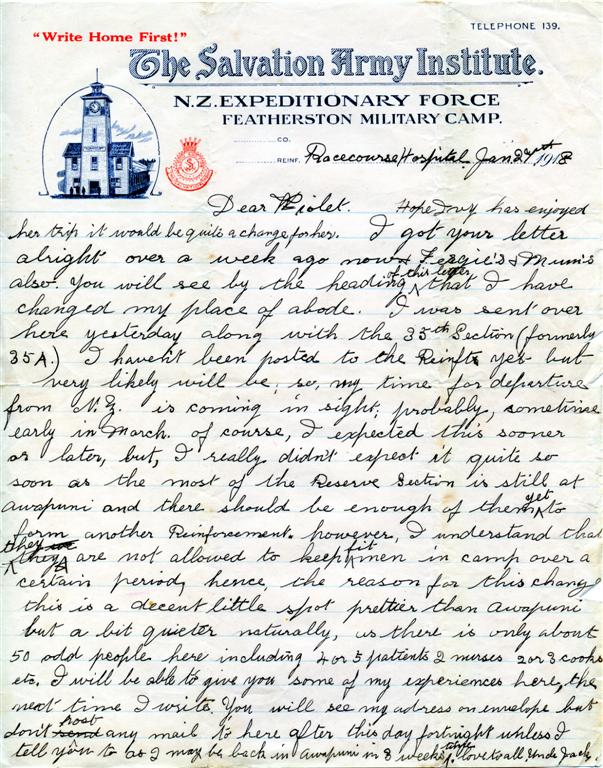 TELEPHONE 139.
"Write Home First!"
The Salvation Army Institute.
N.Z. EXPEDITIONARY FORCE
FEATHERSTON MILITARY CAMP.
CO.
REINF. Racecourse Hospital Jan 27th 1918
Dear Violet. Hope Ivy has enjoyed
her trip it would be quite a change for her. I got your letter
alright over a week ago now & Fergie's & Mum's
also. You will see by the heading of this letter that I have
changed my place of abode. I was sent over
here yesterday along with the 35th Section (formerly
35A.) I haven't been posted to the Reinfts yet but
very likely will be, so, my time for departure
from N.Z. is coming in sight, probably, sometime
early in March. of course, I expected this sooner
or later, but, I really didn't expect it quite so
soon as the most of the Reserve Section is still at
Awapuni and there should be enough of them yet to
form another Reinforcement. however, I understand that
they are not allowed to keep fit men in camp over a
certain period, hence, the reason for this change
this is a decent little spot prettier than Awapuni
but a bit quieter naturally, as there is only about
50 odd people here including 4 or 5 patients 2 nurses 2 or 3 cooks
etc. I will be able to give you some of my experiences here, the
next time I write. You will see my address on envelope but
don't post any mail to here after this day fortnight unless I
tell you to as I may be back in Awapuni in 3 weeks time. love to all, Uncle Jack.